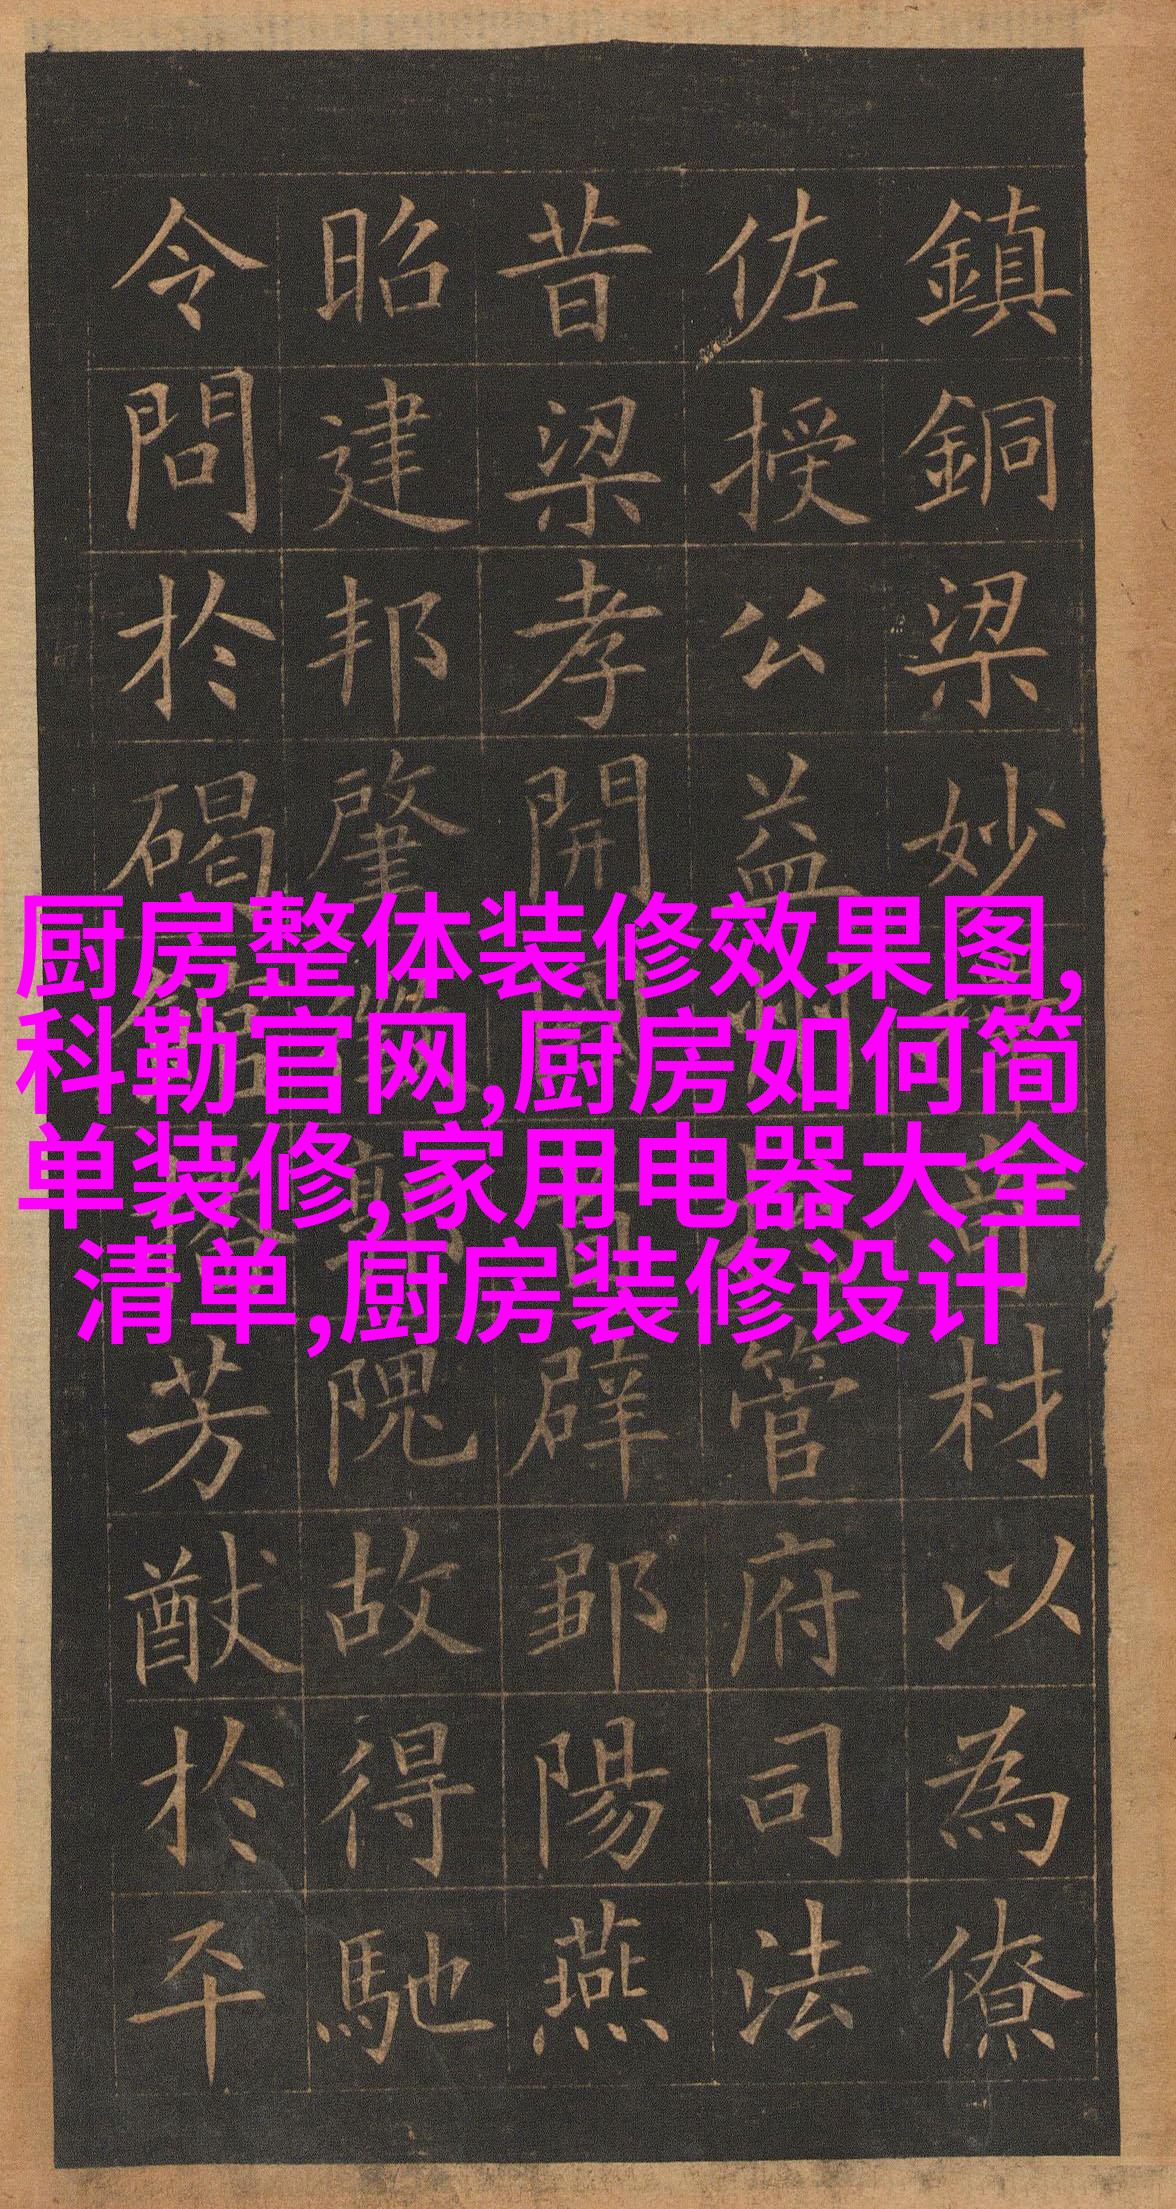 鎮銅梁妙材以為僚
佐授公益管府司法
昔梁孝開辟鄒陽燕
昭建邦肇隗故得馳
令問於碣芳猷於平
厨房整体装修效果图,
科勒官网,厨房如何简
单装修,家用电器大全
清单,厨房装修设计